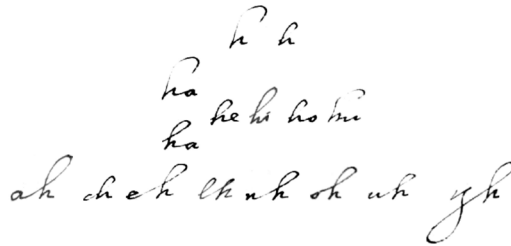 h h
ha
he hi ho hu
ha
ah ch eh lh nh oh uh yh